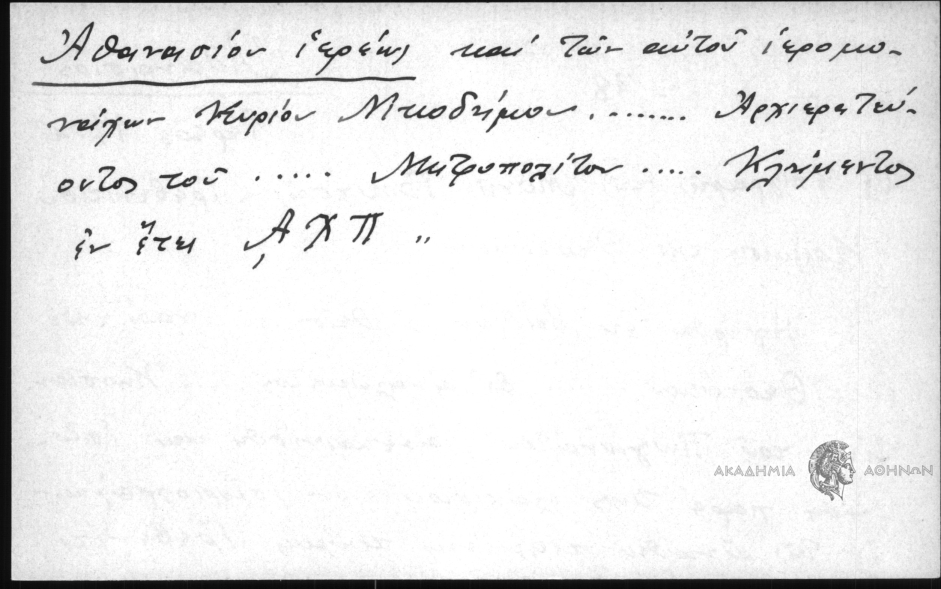 Ἀθανασίου ἱερέως καί τῶν αὐτοῦ ἱερομο-
νάχων Κυρίου Νικοδήμου ........ Ἀρχιερατεύ-
οντος τοῦ ..... Μητροπολίτου ..... Κλήμεντος
ἐν ἔτει ͵ΑΧΠ "
ΑΚΑΔΗΜΙΑ ΑΘΗΝΩΝ